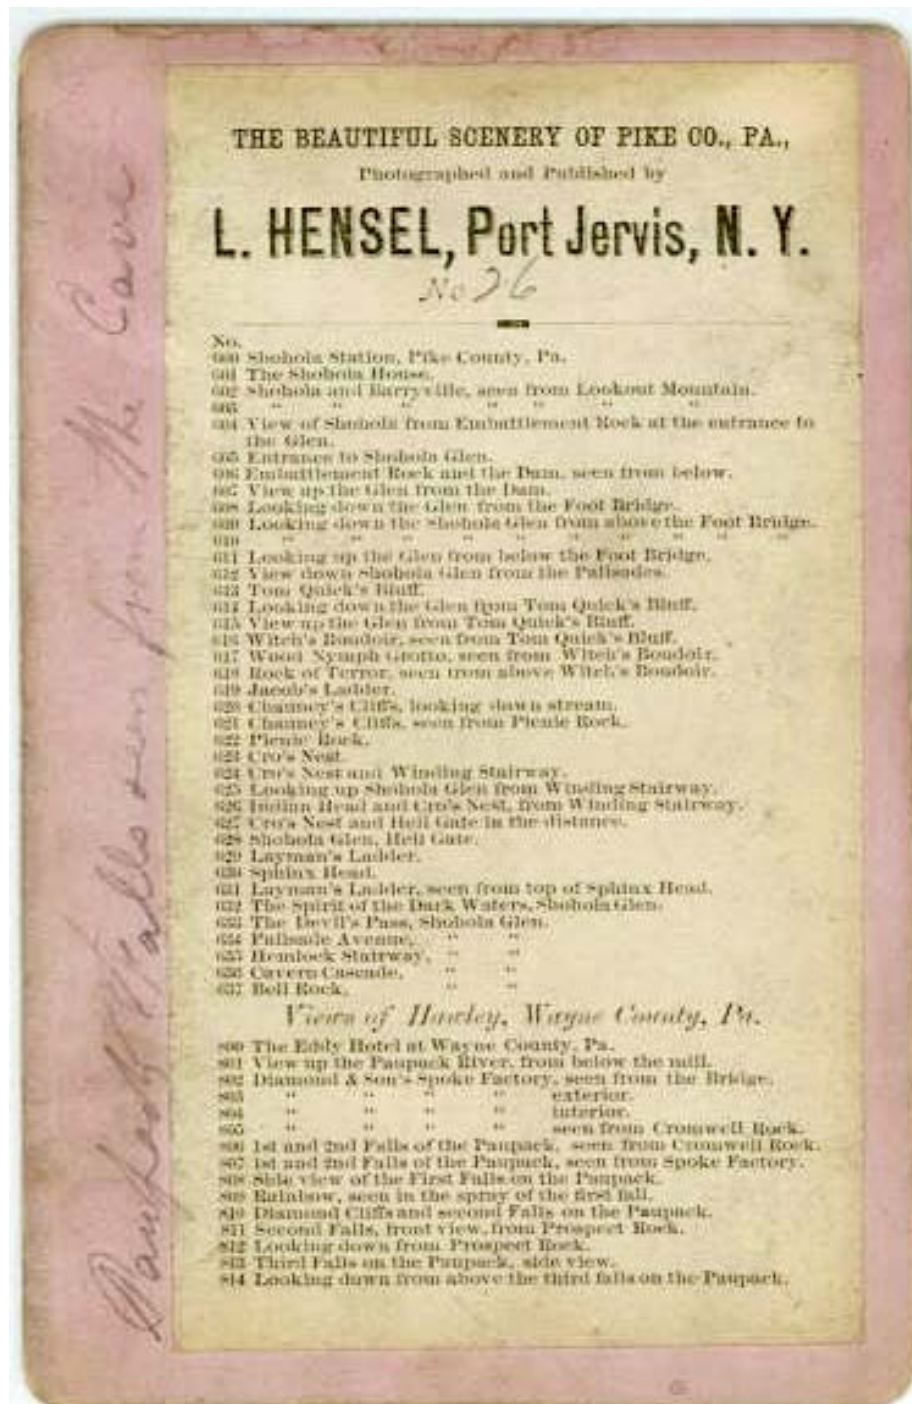 THE BEAUTIFUL SCENERY OF PIKE CO., PA.,
Photographed and Published by
L. HENSEL, Port Jervis, N. Y.
No 26
No.
600 Shohola Station, Pike County, Pa.
601 The Shohola House.
602 Shohola and Barryville, seen from Lookout Mountain.
603 " " " " " " "
604 View of Shohola from Embattlement Rock at the entrance to
the Glen.
605 Entrance to Shohola Glen.
606 Embattlement Rock and the Dam, seen from below.
607 View up the Glen from the Dam.
608 Looking down the Glen from the Foot Bridge.
609 Looking down the Shohola Glen from above the Foot Bridge.
610 " " " " " " " " "
611 Looking up the Glen from below the Foot Bridge.
612 View down Shohola Glen from the Palisades.
613 Tom Quick's Bluff.
614 Looking down the Glen from Tom Quick's Bluff.
615 View up the Glen from Tom Quick's Bluff.
616 Witch's Boudoir, seen from Tom Quick's Bluff.
617 Wood Nymph Grotto, seen from Witch's Boudoir.
618 Rock of Terror, seen from above Witch's Boudoir.
619 Jacob's Ladder.
620 Chauncy's Cliffs, looking down stream.
621 Chauncy's Cliffs, seen from Picnic Rock.
622 Picnic Rock.
623 Cro's Nest.
624 Cro's Nest and Winding Stairway.
625 Looking up Shohola Glen from Winding Stairway.
626 Indian Head and Cro's Nest, from Winding Stairway.
627 Cro's Nest and Hell Gate in the distance.
628 Shohola Glen, Hell Gate.
629 Layman's Ladder.
630 Sphinx Head.
631 Layman's Ladder, seen from top of Sphinx Head.
632 The Spirit of the Dark Waters, Shohola Glen.
633 The Devil's Pass, Shohola Glen.
634 Palisade Avenue, " "
635 Hemlock Stairway, " "
636 Cavern Cascade, " "
637 Bell Rock, " "
Views of Hawley, Wayne County, Pa.
800 The Eddy Hotel at Wayne County, Pa.
801 View up the Paupack River, from below the mill.
802 Diamond & Son's Spoke Factory, seen from the Bridge.
803 " " " " exterior.
804 " " " " interior.
805 " " " " seen from Cromwell Rock.
806 1st and 2nd Falls of the Paupack, seen from Cromwell Rock.
807 1st and 2nd Falls of the Paupack, seen from Spoke Factory.
808 Side view of the First Falls on the Paupack.
809 Rainbow, seen in the spray of the first fall.
810 Diamond Cliffs and second Falls on the Paupack.
811 Second Falls, front view, from Prospect Rock.
812 Looking down from Prospect Rock.
813 Third Falls on the Paupack, side view.
814 Looking down from above the third falls on the Paupack.
Paupack Falls seen from the Cave